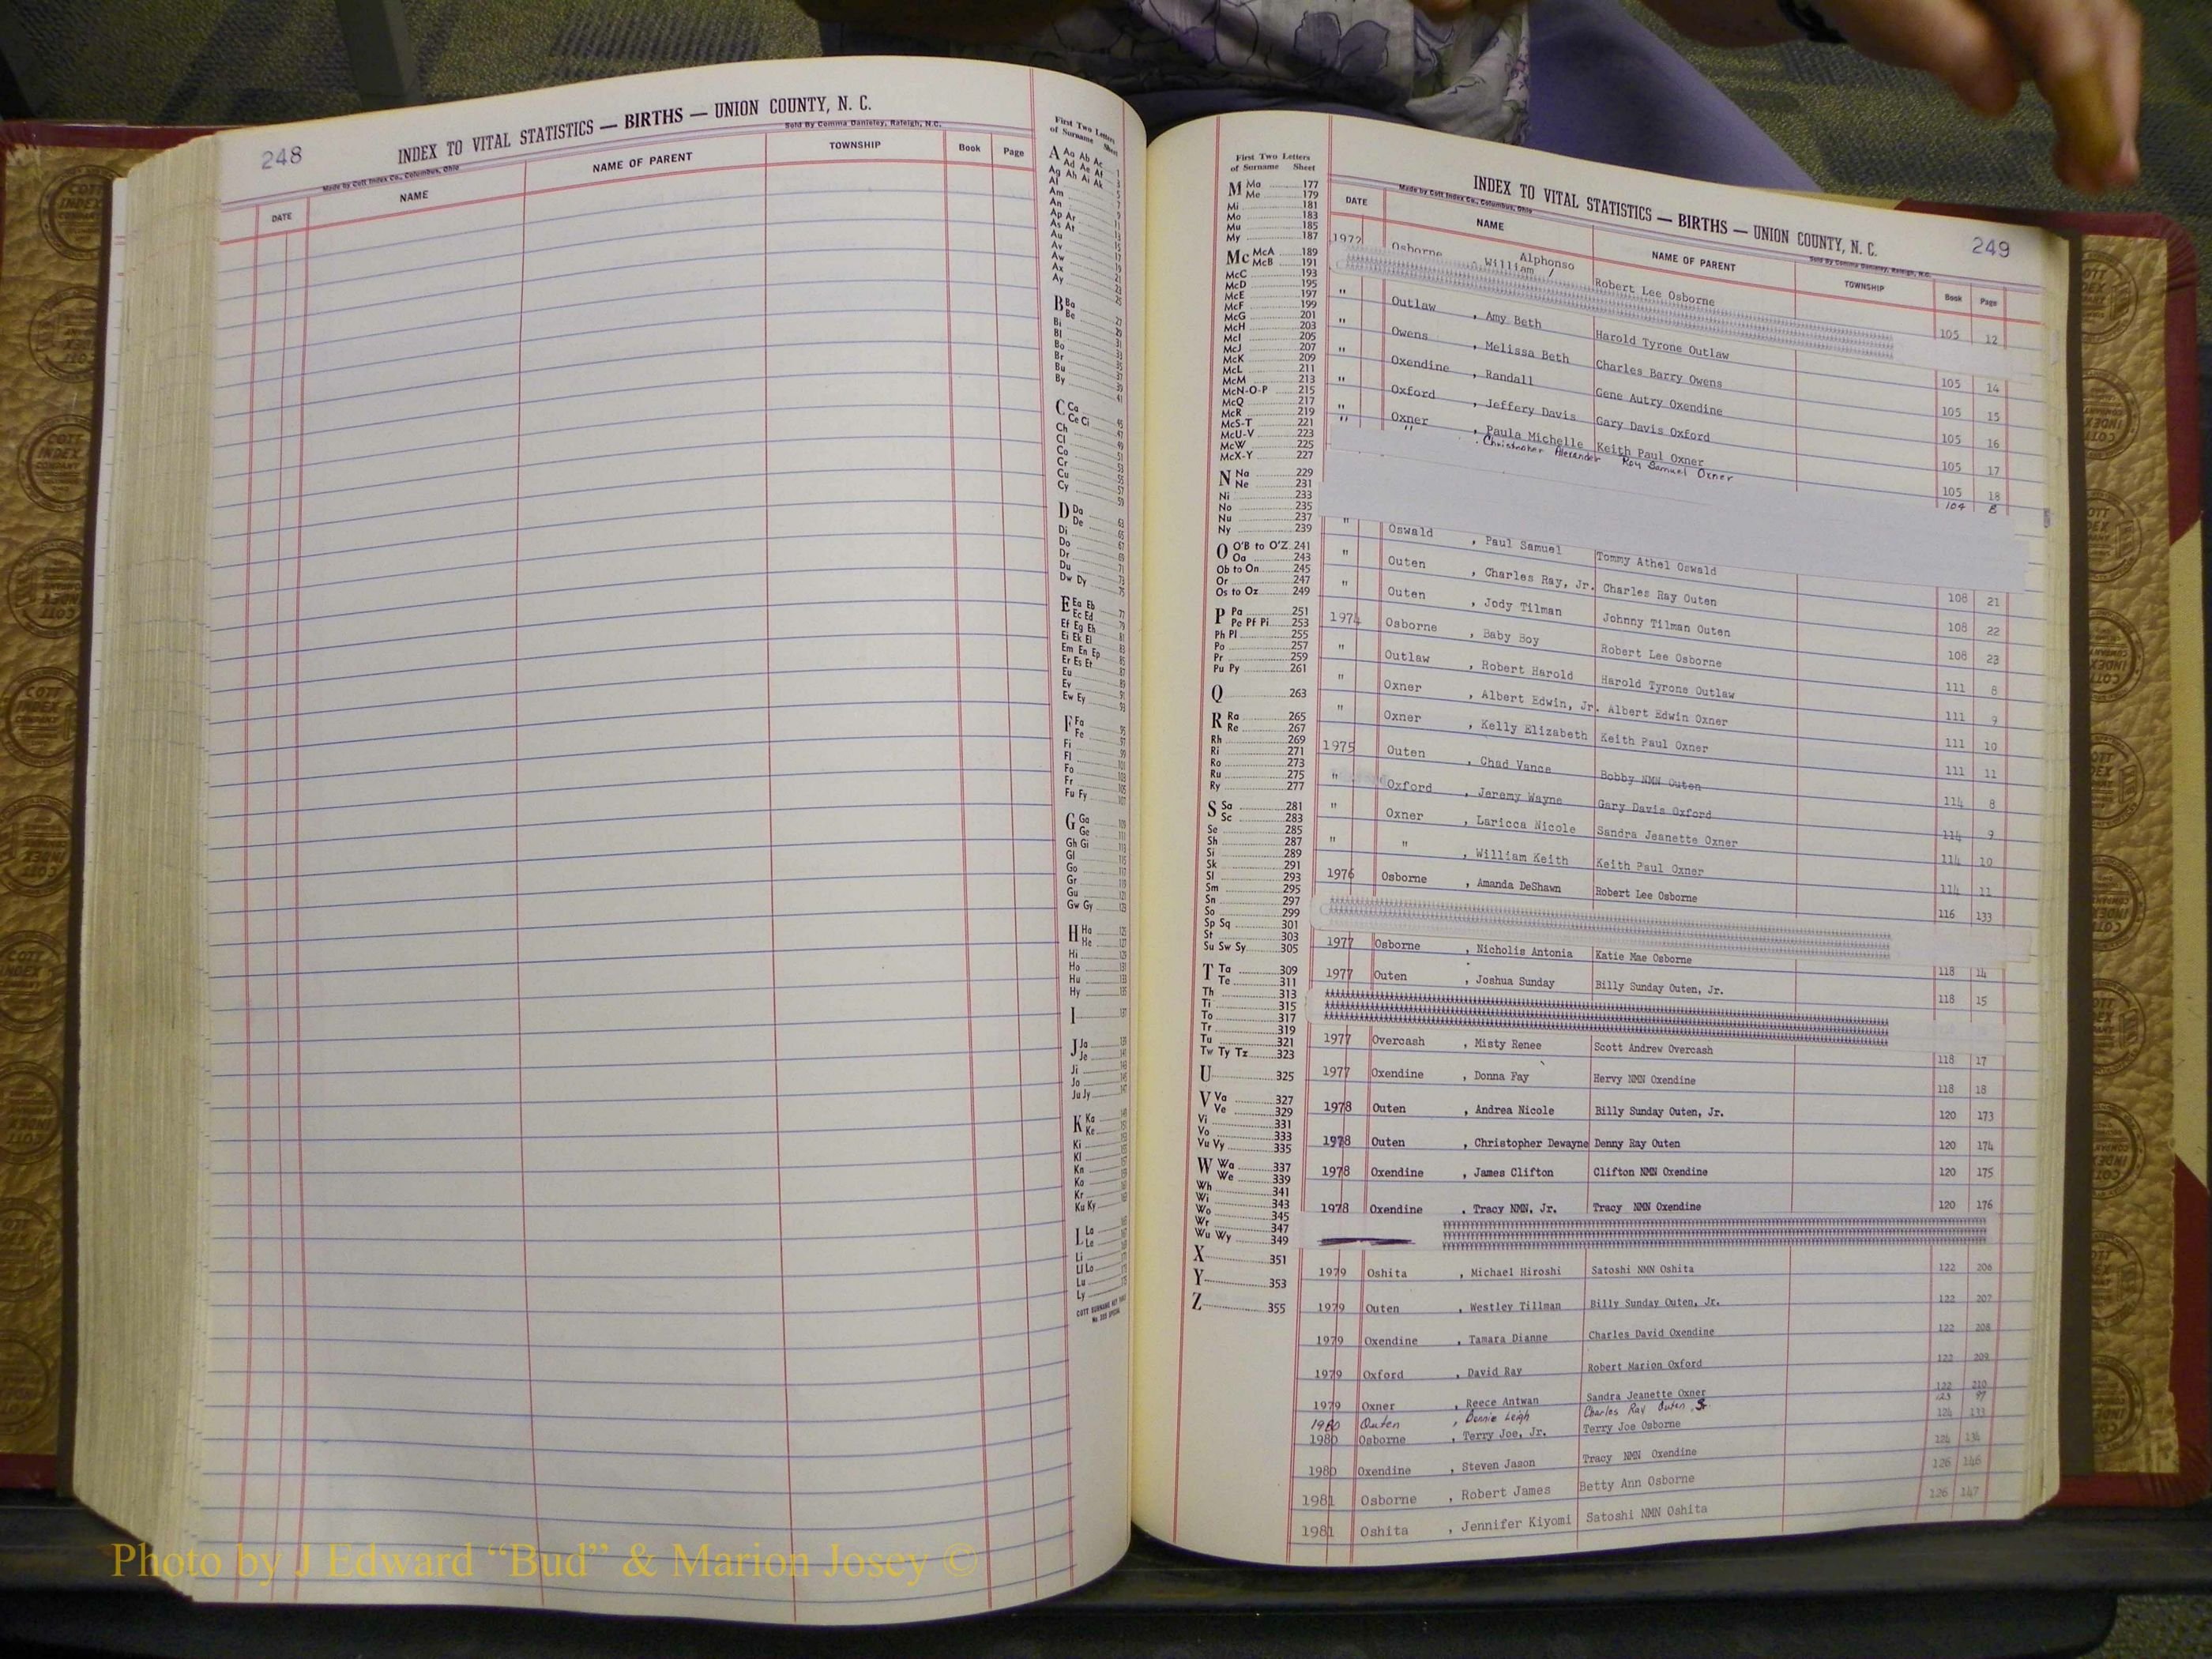 248
INDEX TO VITAL STATISTICS — BIRTHS — UNION COUNTY, N. C.
Made by Cott Index Co., Columbus, Ohio
Sold By Comma Danieley, Raleigh, N.C.
DATE NAME NAME OF PARENT TOWNSHIP Book Page
First Two Letters
of Surname Sheet
A Aa Ab Ac 1
Ad Ae Af 3
Ag Ah Ai Ak 5
Al 7
Am 9
An 11
Ap Ar 13
As At 15
Au 17
Av 19
Aw 21
Ax 23
Ay 25
B Ba 27
Be 29
Bi 31
Bl 33
Bo 35
Br 37
Bu 39
By 41
C Ca 45
Ce Ci 47
Ch 49
Cl 51
Co 53
Cr 55
Cu 57
Cy 59
D Da 63
De 65
Di 67
Do 69
Dr 71
Du 73
Dw Dy 75
E Ea Eb 77
Ec Ed 79
Ef Eg Eh 81
Ei Ek El 83
Em En Ep 85
Er Es Et 87
Eu 89
Ev 91
Ew Ey 93
F Fa 95
Fe 97
Fi 99
Fl 101
Fo 103
Fr 105
Fu Fy 107
G Ga 109
Ge 111
Gh Gi 113
Gl 115
Go 117
Gr 119
Gu 121
Gw Gy 123
H Ha 125
He 127
Hi 129
Ho 131
Hu 133
Hy 135
I 137
J Ja 139
Je 141
Ji 143
Jo 145
Ju Jy 147
K Ka 149
Ke
Ki
Kl
Kn
Ko
Kr
Ku Ky
L La
Le
Li
Ll Lo
Lu
Ly
COTT SURNAME KEY
249
INDEX TO VITAL STATISTICS — BIRTHS — UNION COUNTY, N. C.
Made by Cott Index Co., Columbus, Ohio
Sold By Comma Danieley, Raleigh, N.C.
DATE NAME NAME OF PARENT TOWNSHIP Book Page
First Two Letters
of Surname Sheet
M Ma 177
Me 179
Mi 181
Mo 183
Mu 185
My 187
Mc McA 189
McB 191
McC 193
McD 195
McE 197
McF 199
McG 201
McH 203
McI 205
McJ 207
McK 209
McL 211
McM 213
McN-O-P 215
McQ 217
McR 219
McS-T 221
McU-V 223
McW 225
McX-Y 227
N Na 229
Ne 231
Ni 233
No 235
Nu 237
Ny 239
O O'B to O'Z 241
Oa 243
Ob to On 245
Or 247
Os to Oz 249
P Pa 251
Pe Pf Pi 253
Ph Pl 255
Po 257
Pr 259
Pu Py 261
Q 263
R Ra 265
Re 267
Rh 269
Ri 271
Ro 273
Ru 275
Ry 277
S Sa 281
Sc 283
Se 285
Sh 287
Si 289
Sk 291
Sl 293
Sm 295
Sn 297
So 299
Sp Sq 301
St 303
Su Sw Sy 305
T Ta 309
Te 311
Th 313
Ti 315
To 317
Tr 319
Tu 321
Tw Ty Tz 323
U 325
V Va 327
Ve 329
Vi 331
Vo 333
Vu Vy 335
W Wa 337
We 339
Wh 341
Wi 343
Wo 345
Wr 347
Wu Wy 349
X 351
Y 353
Z 355
1972 Osborne , William / Alphonso Robert Lee Osborne 105 12
" Outlaw , Amy Beth Harold Tyrone Outlaw 105 14
" Owens , Melissa Beth Charles Barry Owens 105 15
" Oxendine , Randall Gene Autry Oxendine 105 16
" Oxford , Jeffery Davis Gary Davis Oxford 105 17
" Oxner , Paula Michelle Keith Paul Oxner 105 18
" " , Christopher Alexander Roy Samuel Oxner 104 8
" Oswald , Paul Samuel Tommy Athel Oswald 108 21
" Outen , Charles Ray, Jr. Charles Ray Outen 108 22
" Outen , Jody Tilman Johnny Tilman Outen 108 23
1974 Osborne , Baby Boy Robert Lee Osborne 111 8
" Outlaw , Robert Harold Harold Tyrone Outlaw 111 9
" Oxner , Albert Edwin, Jr. Albert Edwin Oxner 111 10
" Oxner , Kelly Elizabeth Keith Paul Oxner 111 11
1975 Outen , Chad Vance Bobby NMN Outen 114 8
" Oxford , Jeremy Wayne Gary Davis Oxford 114 9
" Oxner , Laricca Nicole Sandra Jeanette Oxner 114 10
" " , William Keith Keith Paul Oxner 114 11
1976 Osborne , Amanda DeShawn Robert Lee Osborne 116 133
1977 Osborne , Nicholis Antonia Katie Mae Osborne 118 14
1977 Outen , Joshua Sunday Billy Sunday Outen, Jr. 118 15
1977 Overcash , Misty Renee Scott Andrew Overcash 118 17
1977 Oxendine , Donna Fay Hervy NMN Oxendine 118 18
1978 Outen , Andrea Nicole Billy Sunday Outen, Jr. 120 173
1978 Outen , Christopher Dewayne Denny Ray Outen 120 174
1978 Oxendine , James Clifton Clifton NMN Oxendine 120 175
1978 Oxendine , Tracy NMN, Jr. Tracy NMN Oxendine 120 176
1979 Oshita , Michael Hiroshi Satoshi NMN Oshita 122 206
1979 Outen , Westley Tillman Billy Sunday Outen, Jr. 122 207
1979 Oxendine , Tamara Dianne Charles David Oxendine 122 208
1979 Oxford , David Ray Robert Marion Oxford 122 209
1979 Oxner , Reece Antwan Sandra Jeanette Oxner 122 210
1980 Outen , Bonnie Leigh Charles Ray Outen, Sr. 123 97
1980 Osborne , Terry Joe, Jr. Terry Joe Osborne 124 133
1980 Oxendine , Steven Jason Tracy NMN Oxendine 124 134
1981 Osborne , Robert James Betty Ann Osborne 126 146
1981 Oshita , Jennifer Kiyomi Satoshi NMN Oshita 126 147
Photo by J Edward “Bud” & Marion Josey ©